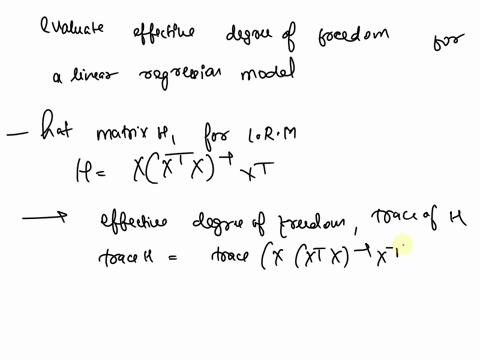 evaluate effective degree of freedom for
a linear regression model
— hat matrix H, for L.R.M
H = X(X^T X)^-1 X^T
→ effective degree of freedom, trace of H
trace H = trace (X (X^T X)^-1 X^T